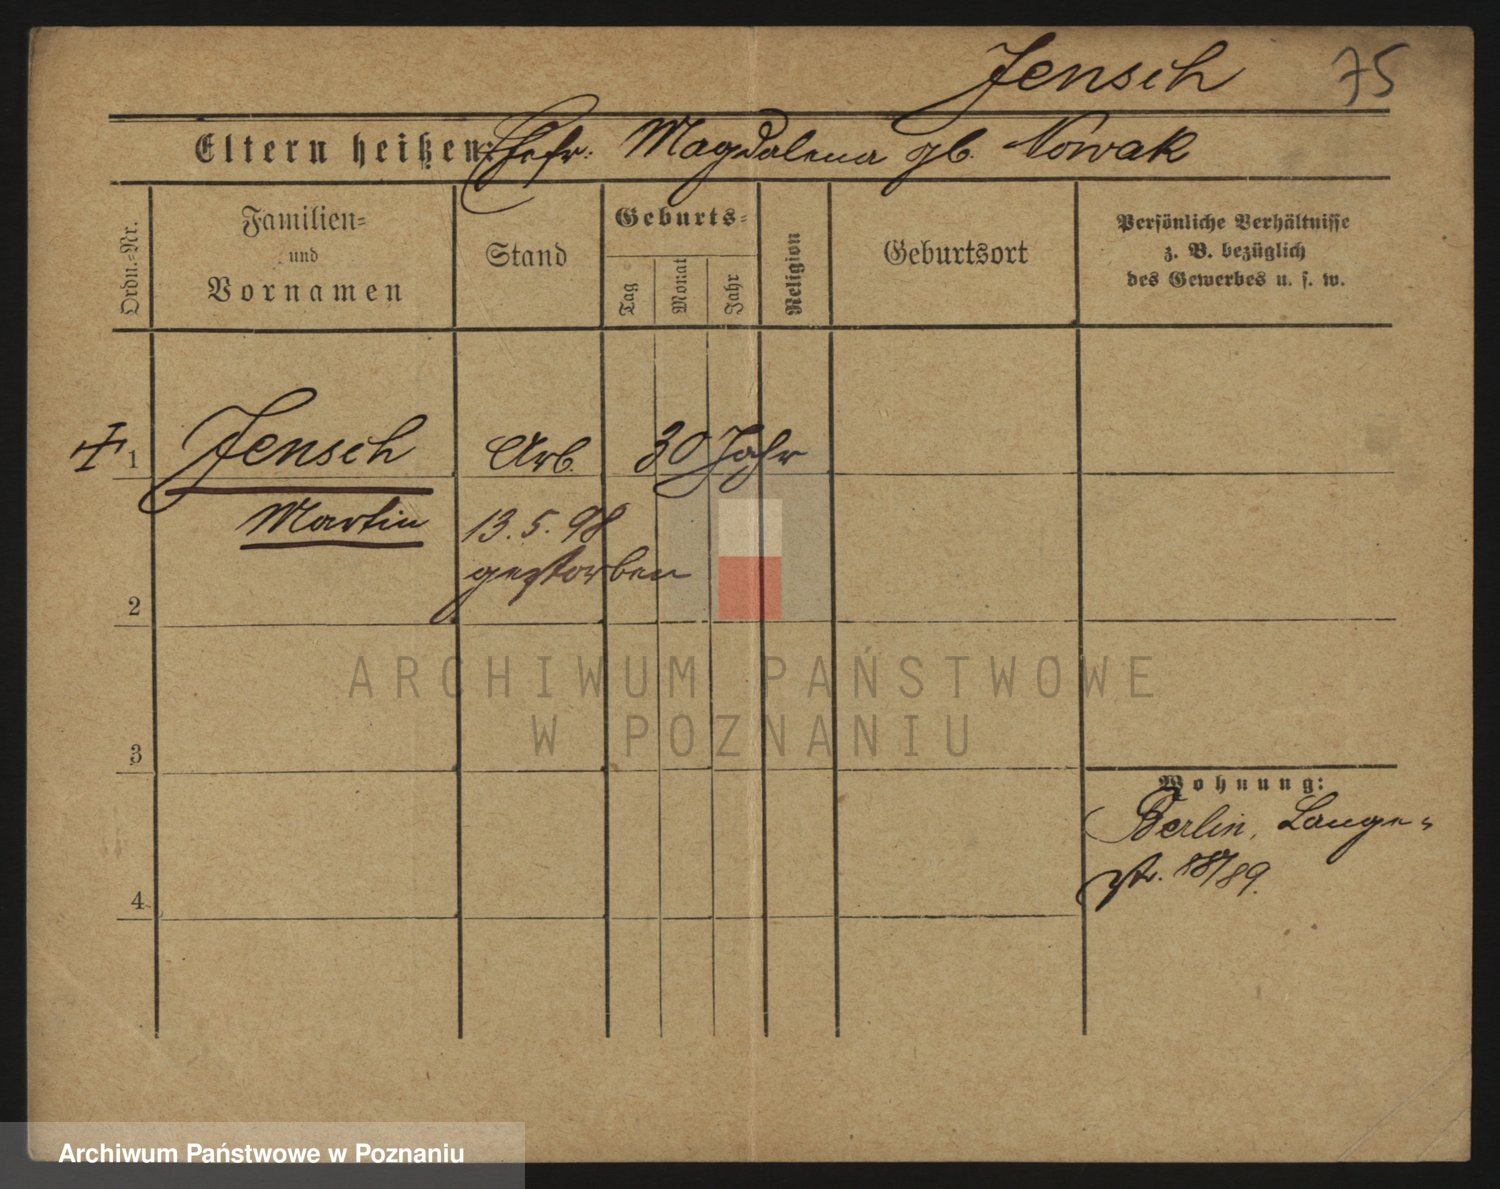 Jensch 75
Eltern heißen: Ehefr. Magdalena gb. Nowak
Ordn.-Nr.
Familien-
und
Vornamen
Stand
Geburts-
Tag
Monat
Jahr
Religion
Geburtsort
Persönliche Verhältnisse
z. B. bezüglich
des Gewerbes u. s. w.
1 Jensch Arb. 30 Jahr
Martin 13.5.98
gestorben
2
ARCHIWUM PAŃSTWOWE
W POZNANIU
3
Wohnung:
Berlin, Lange-
str. 89.
4
Archiwum Państwowe w Poznaniu